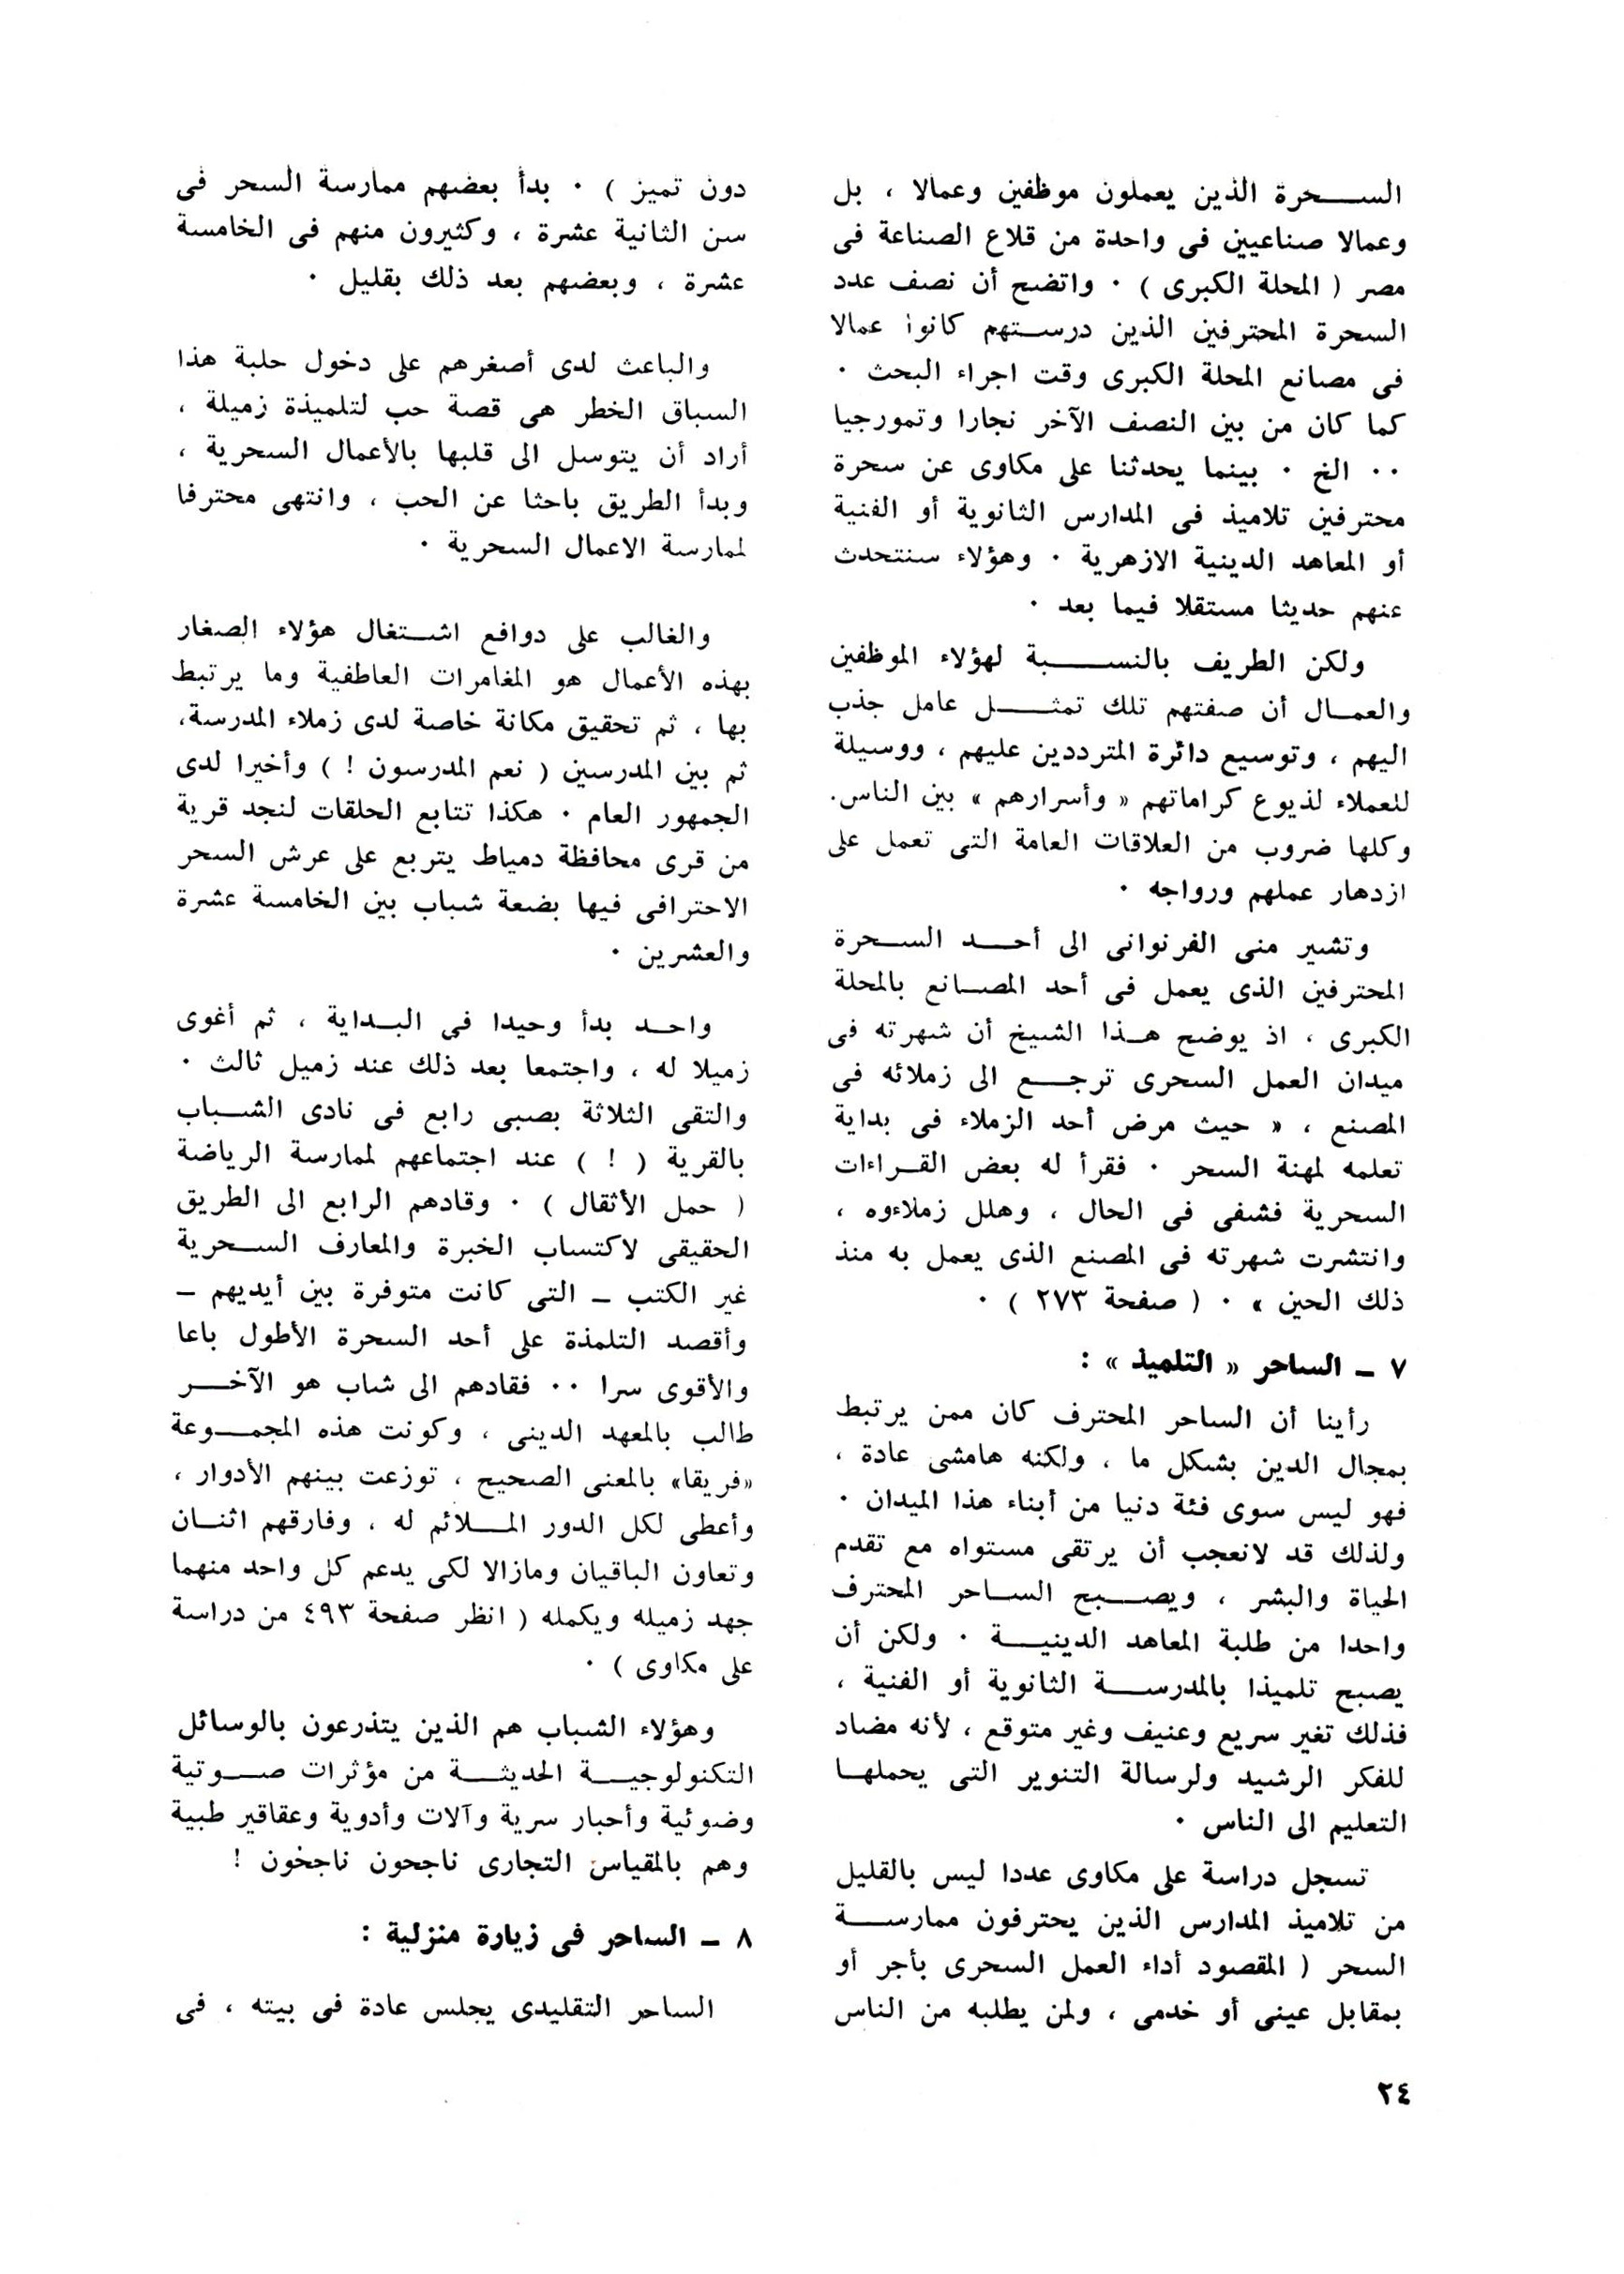 السحرة الذين يعملون موظفين وعمالا ، بل
وعمالا صناعيين فى واحدة من قلاع الصناعة فى
مصر ( المحلة الكبرى ) ٠ واتضح أن نصف عدد
السحرة المحترفين الذين درستهم كانوا عمالا
فى مصانع المحلة الكبرى وقت اجراء البحث ٠
كما كان من بين النصف الآخر نجارا وتمورجيا
٠٠ الخ ٠ بينما يحدثنا على مكاوى عن سحرة
محترفين تلاميذ فى المدارس الثانوية أو الفنية
أو المعاهد الدينية الازهرية ٠ وهؤلاء سنتحدث
عنهم حديثا مستقلا فيما بعد ٠
ولكن الطريف بالنسبة لهؤلاء الموظفين
والعمال أن صفتهم تلك تمثل عامل جذب
اليهم ، وتوسيع دائرة المترددين عليهم ، ووسيلة
للعملاء لذيوع كراماتهم « وأسرارهم » بين الناس.
وكلها ضروب من العلاقات العامة التى تعمل على
ازدهار عملهم ورواجه ٠
وتشير منى الفرنوانى الى أحد السحرة
المحترفين الذى يعمل فى أحد المصانع بالمحلة
الكبرى ، اذ يوضح هذا الشيخ أن شهرته فى
ميدان العمل السحرى ترجع الى زملائه فى
المصنع ، « حيث مرض أحد الزملاء فى بداية
تعلمه لمهنة السحر ٠ فقرأ له بعض القراءات
السحرية فشفى فى الحال ، وهلل زملاءوه ،
وانتشرت شهرته فى المصنع الذى يعمل به منذ
ذلك الحين » ٠ ( صفحة ٢٧٣ ) ٠
٧ ـ الساحر « التلميذ » :
رأينا أن الساحر المحترف كان ممن يرتبط
بمجال الدين بشكل ما ، ولكنه هامشى عادة ،
فهو ليس سوى فئة دنيا من أبناء هذا الميدان ٠
ولذلك قد لانعجب أن يرتقى مستواه مع تقدم
الحياة والبشر ، ويصبح الساحر المحترف
واحدا من طلبة المعاهد الدينية ٠ ولكن أن
يصبح تلميذا بالمدرسة الثانوية أو الفنية ،
فذلك تغير سريع وعنيف وغير متوقع ، لأنه مضاد
للفكر الرشيد ولرسالة التنوير التى يحملها
التعليم الى الناس ٠
تسجل دراسة على مكاوى عددا ليس بالقليل
من تلاميذ المدارس الذين يحترفون ممارسة
السحر ( المقصود أداء العمل السحرى بأجر أو
بمقابل عينى أو خدمى ، ولمن يطلبه من الناس
دون تميز ) ٠ بدأ بعضهم ممارسة السحر فى
سن الثانية عشرة ، وكثيرون منهم فى الخامسة
عشرة ، وبعضهم بعد ذلك بقليل ٠
والباعث لدى أصغرهم على دخول حلبة هذا
السباق الخطر هى قصة حب لتلميذة زميلة ،
أراد أن يتوسل الى قلبها بالأعمال السحرية ،
وبدأ الطريق باحثا عن الحب ، وانتهى محترفا
لممارسة الاعمال السحرية ٠
والغالب على دوافع اشتغال هؤلاء الصغار
بهذه الأعمال هو المغامرات العاطفية وما يرتبط
بها ، ثم تحقيق مكانة خاصة لدى زملاء المدرسة،
ثم بين المدرسين ( نعم المدرسون ! ) وأخيرا لدى
الجمهور العام ٠ هكذا تتابع الحلقات لنجد قرية
من قرى محافظة دمياط يتربع على عرش السحر
الاحترافى فيها بضعة شباب بين الخامسة عشرة
والعشرين ٠
واحد بدأ وحيدا فى البداية ، ثم أغوى
زميلا له ، واجتمعا بعد ذلك عند زميل ثالث ٠
والتقى الثلاثة بصبى رابع فى نادى الشباب
بالقرية ( ! ) عند اجتماعهم لممارسة الرياضة
( حمل الأثقال ) ٠ وقادهم الرابع الى الطريق
الحقيقى لاكتساب الخبرة والمعارف السحرية
غير الكتب ـ التى كانت متوفرة بين أيديهم ـ
وأقصد التلمذة على أحد السحرة الأطول باعا
والأقوى سرا ٠٠ فقادهم الى شاب هو الآخر
طالب بالمعهد الدينى ، وكونت هذه المجموعة
«فريقا» بالمعنى الصحيح ، توزعت بينهم الأدوار ،
وأعطى لكل الدور الملائم له ، وفارقهم اثنان
وتعاون الباقيان ومازالا لكى يدعم كل واحد منهما
جهد زميله ويكمله ( انظر صفحة ٤٩٣ من دراسة
على مكاوى ) ٠
وهؤلاء الشباب هم الذين يتذرعون بالوسائل
التكنولوجية الحديثة من مؤثرات صوتية
وضوئية وأحبار سرية وآلات وأدوية وعقاقير طبية
وهم بالمقياس التجارى ناجحون ناجحون !
٨ ـ الساحر فى زيارة منزلية :
الساحر التقليدى يجلس عادة فى بيته ، فى
٢٤